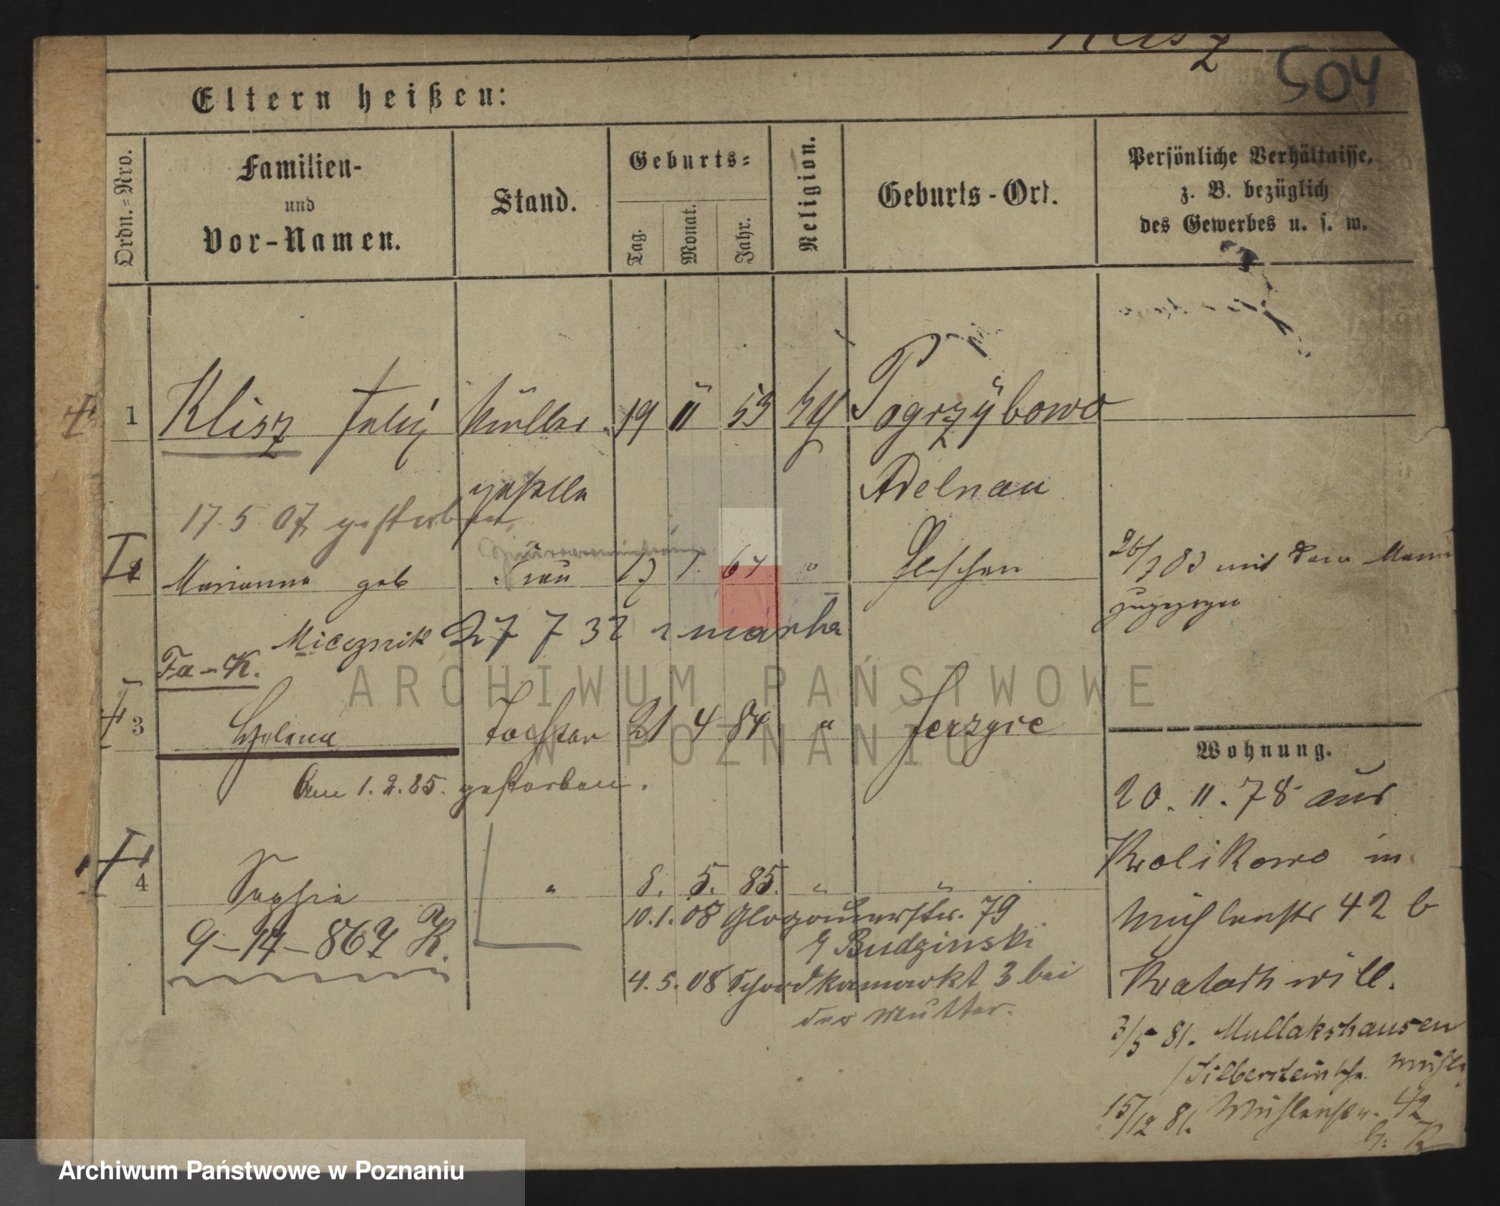 Klisz
504
Eltern heißen:
Ordn.=Nro.
Familien-
und
Vor-Namen.
Stand.
Geburts=
Tag.
Monat.
Jahr.
Religion.
Geburts-Ort.
Persönliche Verhältnisse,
z. B. bezüglich
des Gewerbes u. s. w.
1 Klisz Felix Müller 19 11 53 Pogrzÿbowo
geselle Adelnau
17 5 07 gestorben
2 Marianna geb Frau 7. 64 " Pleschen
26/3 83 mit dem Mann
zugezogen
Miecznik 27 7 32 zmarła
Fa-K.
3 Helena Tochter 21 4 84 " Jerzyce
Am 1.2.85. gestorben.
4 Sophia " 8. 5. 85. " "
9-14-867 K.
10.1.08 Glogauerstr. 79
b Budzinski
4.5.08 3 bei
der Mutter.
Wohnung.
20.11.78 aus
Krolikowo in
Mühlenstr 42 b
3/5 81. Mullakshausen
/Silbersteinsche Mühle
15/12 81. Mühlenstr. 42
ARCHIWUM PAŃSTWOWE
W POZNANIU
Archiwum Państwowe w Poznaniu